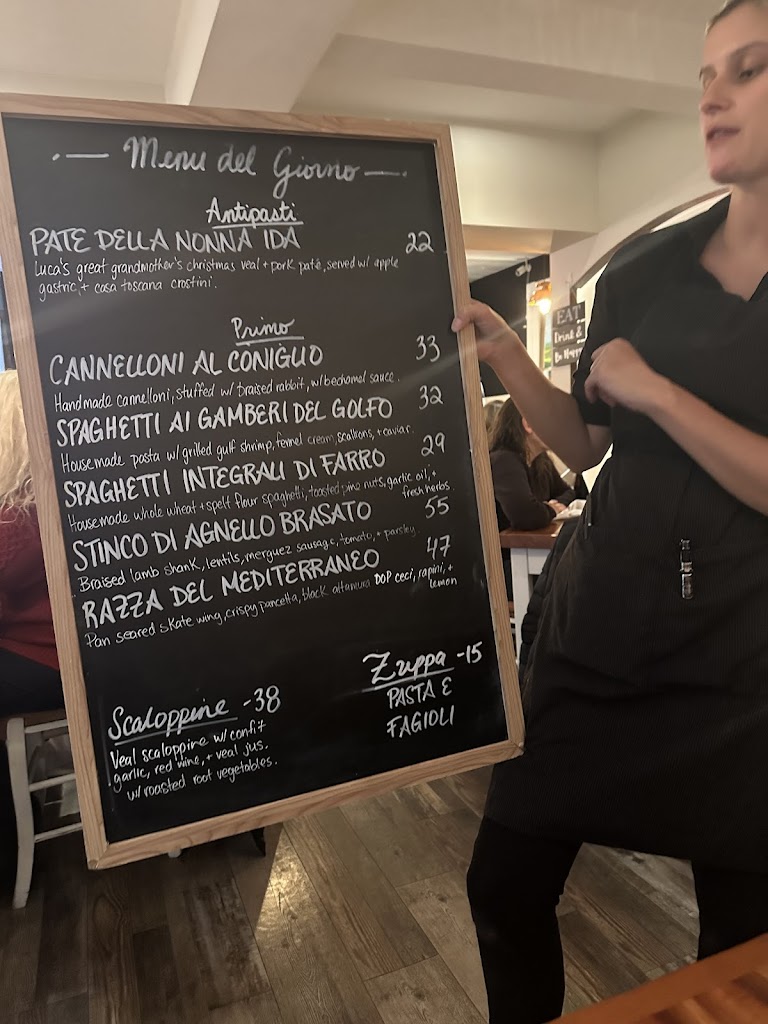 Menu del Giorno
Antipasti
PATE DELLA NONNA IDA 22
Luca's great grandmother's christmas veal + pork paté, served w/ apple
gastric, + casa toscana crostini.
Primo
CANNELLONI AL CONIGLIO 33
Handmade cannelloni, stuffed w/ braised rabbit, w/ bechamel sauce.
SPAGHETTI AI GAMBERI DEL GOLFO 32
Housemade pasta w/ grilled gulf shrimp, fennel cream, scallions, + caviar.
SPAGHETTI INTEGRALI DI FARRO 29
Housemade whole wheat + spelt flour spaghetti, toasted pine nuts, garlic oil, +
fresh herbs
STINCO DI AGNELLO BRASATO 55
Braised lamb shank, lentils, merguez sausage, tomato, + parsley
RAZZA DEL MEDITERRANEO 47
Pan seared skate wing, crispy pancetta, black DOP ceci, rapini, +
lemon
Scaloppine -38
Veal scaloppine w/ confit
garlic, red wine, + veal jus.
w/ roasted root vegetables.
Zuppa -15
PASTA E
FAGIOLI
EAT
Drink &
Be Happy